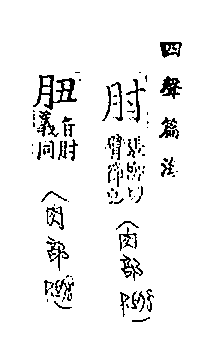 四聲篇海
肘
張柳切
臂節也
(肉部
䏔
音肘
義同
(肉部